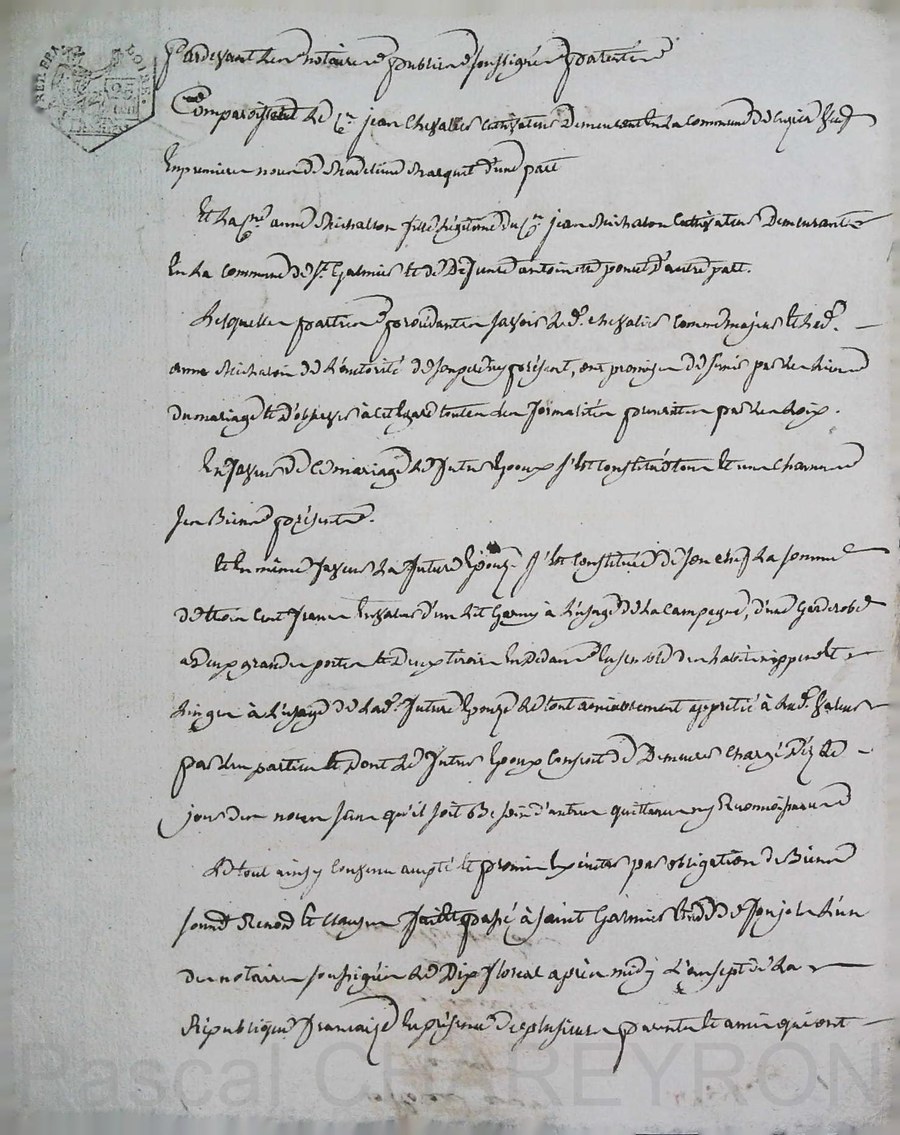 RÉP. FRA. LOIRE.
Pardevant les notaires publics soussignés patentés
Comparoissent le c.en jean Chevalier cultivateur Demeurant en la commune de Cuzieu veuf
en premieres noces de Madeleine Marquet d'une part
Et la c.ne anne Michalon fille légitime du c.en jean Michalon Cultivateur Demeurante
en la commune de St. Galmier et de Defunte antoinette poncet d'autre part.
Lesquelles parties procédantes savoir led. chevalier comme majeur et lad.
anne Michalon de l'autorité de son pere icy présent, ont promis de s'unir par les liens
du mariage et d'observer à cet égard toutes les formalités prescrites par les loix.
En faveur de ce mariage le futur Epoux s'est constitué tous et uns chacuns
ses Biens présents.
Et en même faveur la future Epouze s'est constituée de son chef la somme
de trois cent francs en valeur d'un lit Garny à l'usage de la campagne, d'une Garderobe
a deux grandes portes et deux tiroirs en dedans ensemble des habits nippes et
linges à l'usage de lad. future Epouze le tout amiablement apprétié à lad. valeur
par les parties et dont le futur Epoux consent de Demeurer chargé dèz le
jour des noces sans qu'il soit Besoin d'autre quittance ny Reconnoissance
Le tout ainsy convenu accepté et promis exécuter par obligation de Biens
soumis Renon. et clauses fait et passé à saint Galmier étude de Ponjol l'un
des notaires soussignés le Dix floreal après midy L'an sept de La
République française en présence de plusieurs parents et amis qui ont
Pascal CHAREYRON